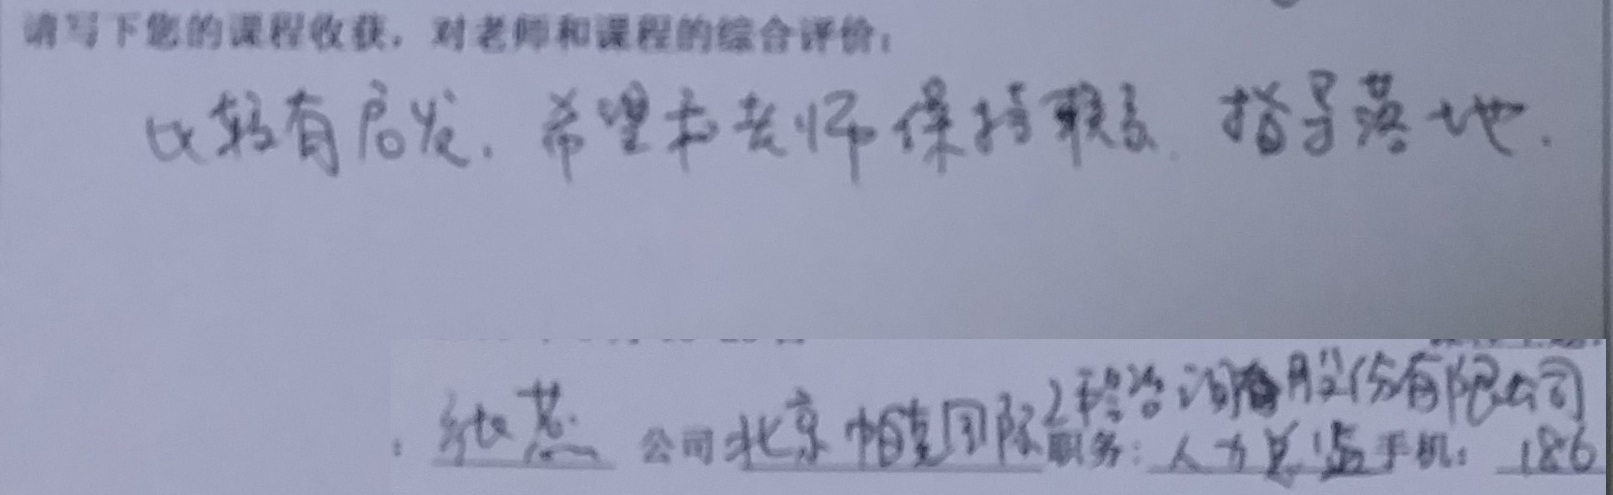 请写下您的课程收获，对老师和课程的综合评价：
比较有启发，希望和老师保持联系，指导落地．
工程咨询股份有限公司
： 公司 北京帕克国际 职务：人力总监 手机：186